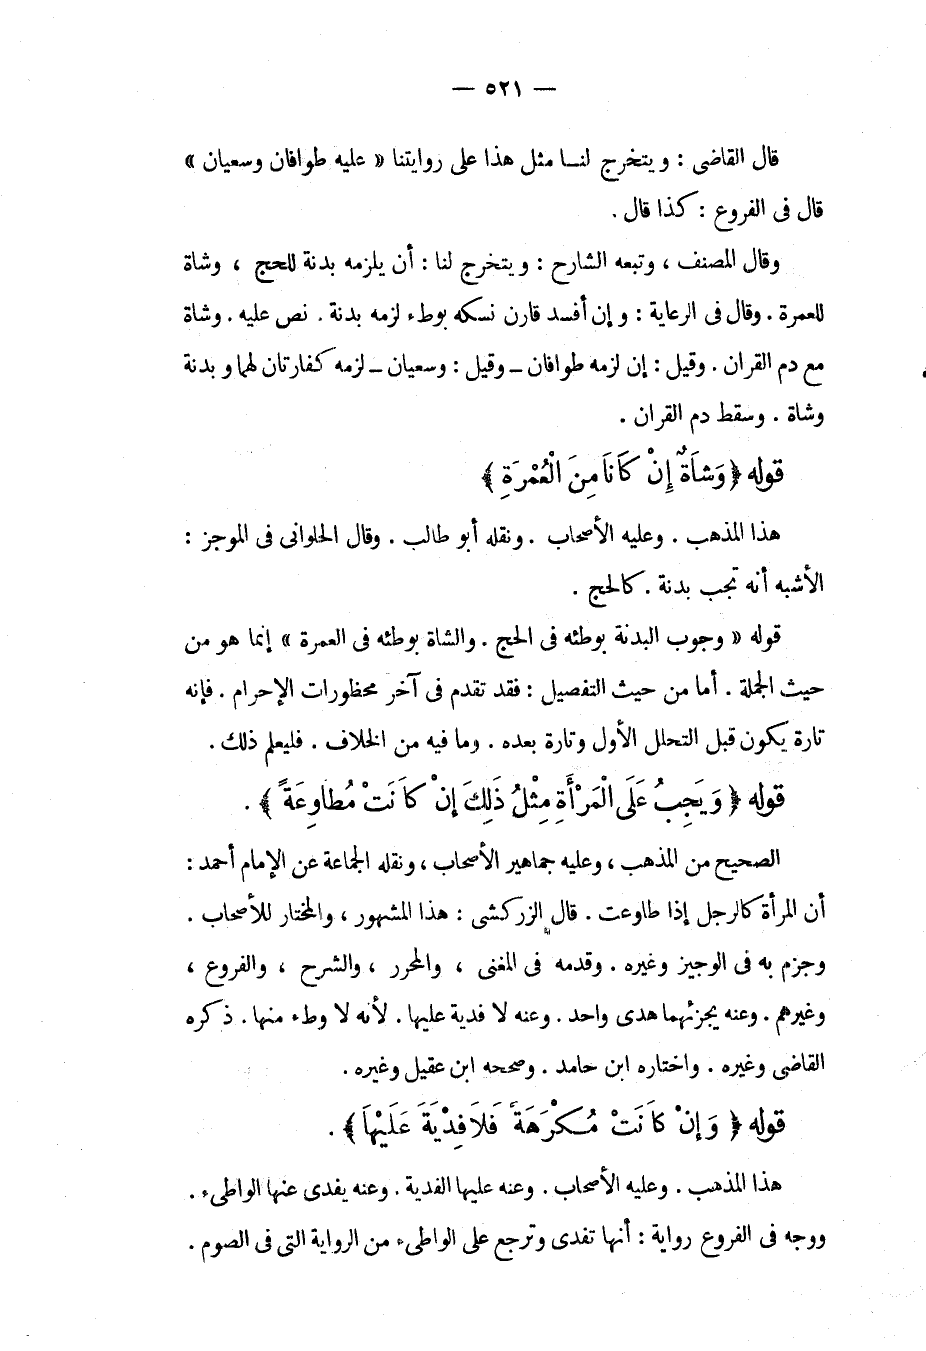 — ٥٢١ —
قال القاضى : ويتخرج لنا مثل هذا على روايتنا « عليه طوافان وسعيان »
قال فى الفروع : كذا قال .
وقال المصنف ، وتبعه الشارح : ويتخرج لنا : أن يلزمه بدنة للحج ، وشاة
للعمرة . وقال فى الرعاية : وإن أفسد قارن نسكه بوطء لزمه بدنة . نص عليه . وشاة
مع دم القران . وقيل : إن لزمه طوافان ــ وقيل : وسعيان ــ لزمه كفارتان لهما وبدنة
وشاة . وسقط دم القران .
قوله ﴿ وَشَاةٌ إِنْ كَانَا مِنَ الْعُمْرَةِ ﴾
هذا المذهب . وعليه الأصحاب . ونقله أبو طالب . وقال الحلوانى فى الموجز :
الأشبه أنه تجب بدنة . كالحج .
قوله « وجوب البدنة بوطئه فى الحج . والشاة بوطئه فى العمرة » إنما هو من
حيث الجملة . أما من حيث التفصيل : فقد تقدم فى آخر محظورات الإحرام . فإنه
تارة يكون قبل التحلل الأول وتارة بعده . وما فيه من الخلاف . فليعلم ذلك .
قوله ﴿ وَيَجِبُ عَلَى الْمَرْأَةِ مِثْلُ ذَلِكَ إِنْ كَانَتْ مُطَاوِعَةً ﴾ .
الصحيح من المذهب ، وعليه جماهير الأصحاب ، ونقله الجماعة عن الإمام أحمد :
أن المرأة كالرجل إذا طاوعت . قال الزركشى : هذا المشهور ، والمختار للأصحاب .
وجزم به فى الوجيز وغيره . وقدمه فى المغنى ، والمحرر ، والشرح ، والفروع ،
وغيرهم . وعنه يجزئهما هدى واحد . وعنه لا فدية عليها . لأنه لا وطء منها . ذكره
القاضى وغيره . واختاره ابن حامد . وصححه ابن عقيل وغيره .
قوله ﴿ وَإِنْ كَانَتْ مُكْرَهَةً فَلَا فِدْيَةَ عَلَيْهَا ﴾ .
هذا المذهب . وعليه الأصحاب . وعنه عليها الفدية . وعنه يفدى عنها الواطىء .
ووجه فى الفروع رواية : أنها تفدى وترجع على الواطىء من الرواية التى فى الصوم .